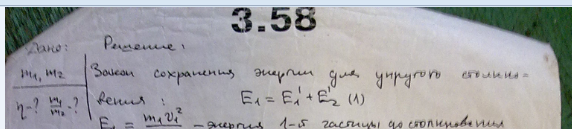 3.58
Дано: Решение:
m₁, m₂ Закон сохранения энергии для упругого столкно-
η-? m₁/m₂-? вения: E₁ = E₁' + E₂' (1)
E₁ = m₁v₁²/2 - энергия 1-й частицы до столкновения